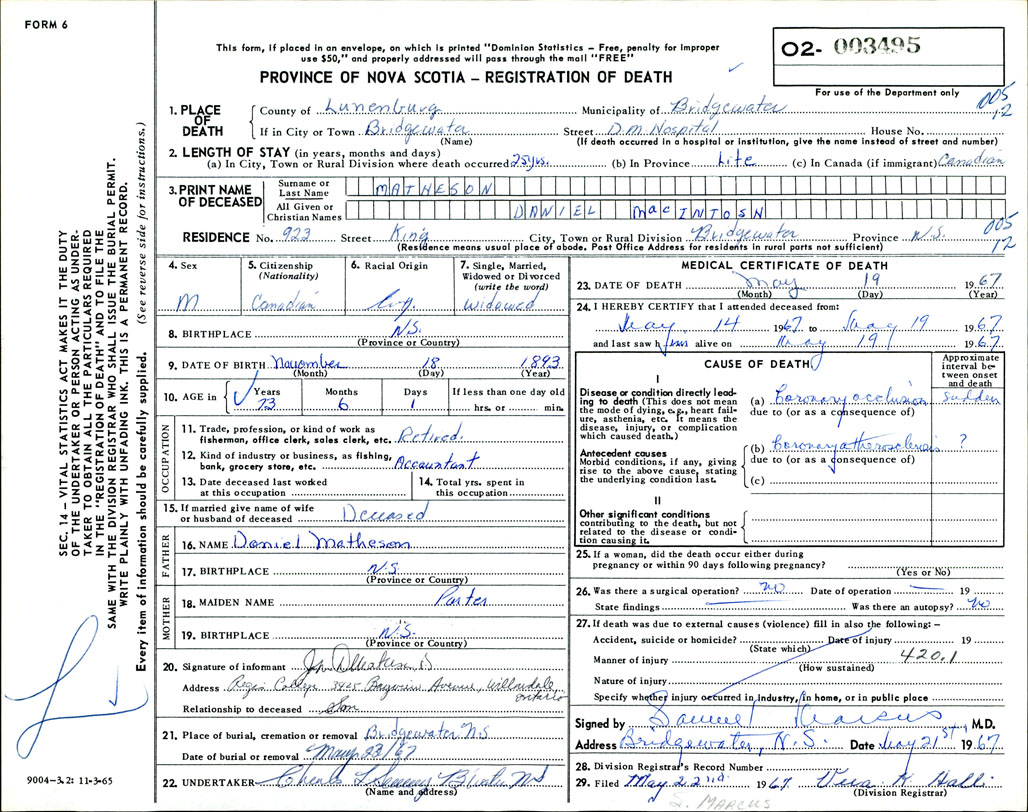 FORM 6
This form, if placed in an envelope, on which is printed "Dominion Statistics – Free, penalty for improper
use $50," and properly addressed will pass through the mail "FREE"
PROVINCE OF NOVA SCOTIA – REGISTRATION OF DEATH
02- 003495
For use of the Department only
005
12
SEC. 14 – VITAL STATISTICS ACT MAKES IT THE DUTY
OF THE UNDERTAKER OR PERSON ACTING AS UNDER-
TAKER TO OBTAIN ALL THE PARTICULARS REQUIRED
IN THE "REGISTRATION OF DEATH" AND TO FILE THE
SAME WITH THE DIVISION REGISTRAR WHO SHALL ISSUE THE BURIAL PERMIT.
WRITE PLAINLY WITH UNFADING INK. THIS IS A PERMANENT RECORD.
Every item of information should be carefully supplied. (See reverse side for instructions.)
1. PLACE OF DEATH
County of Lunenburg Municipality of Bridgewater
If in City or Town Bridgewater Street D.M. Hospital House No.
(Name) (If death occurred in a hospital or institution, give the name instead of street and number)
2. LENGTH OF STAY (in years, months and days)
(a) In City, Town or Rural Division where death occurred 25 yrs. (b) In Province Life (c) In Canada (if immigrant) Canadian
3. PRINT NAME OF DECEASED
Surname or Last Name MATHESON
All Given or Christian Names DANIEL MacINTOSH
005
12
RESIDENCE No. 923 Street King City, Town or Rural Division Bridgewater Province N.S.
(Residence means usual place of abode. Post Office Address for residents in rural parts not sufficient)
4. Sex
M
5. Citizenship (Nationality)
Canadian
6. Racial Origin
7. Single, Married, Widowed or Divorced (write the word)
Widowed
8. BIRTHPLACE N.S.
(Province or Country)
9. DATE OF BIRTH November 18 1893
(Month) (Day) (Year)
10. AGE in
Years 73
Months 6
Days 1
If less than one day old
hrs. or min.
OCCUPATION
11. Trade, profession, or kind of work as
fisherman, office clerk, sales clerk, etc. Retired.
12. Kind of industry or business, as fishing,
bank, grocery store, etc. Accountant
13. Date deceased last worked
at this occupation
14. Total yrs. spent in
this occupation
15. If married give name of wife
or husband of deceased Deceased
FATHER
16. NAME Daniel Matheson
17. BIRTHPLACE N.S
(Province or Country)
MOTHER
18. MAIDEN NAME Porter
19. BIRTHPLACE N.S.
(Province or Country)
20. Signature of informant
Address Regis College 3425 Bayview Avenue, Willowdale
Ontario
Relationship to deceased Son
21. Place of burial, cremation or removal Bridgewater N.S
Date of burial or removal May 23/67
22. UNDERTAKER B'water NS
(Name and address)
9004-3.21 11-3-65
MEDICAL CERTIFICATE OF DEATH
23. DATE OF DEATH May 19 1967
(Month) (Day) (Year)
24. I HEREBY CERTIFY that I attended deceased from:
May 14 1967 to May 19 1967
and last saw him alive on May 19 1967
CAUSE OF DEATH
Approximate interval between onset and death
I
Disease or condition directly lead-
ing to death (This does not mean
the mode of dying, e.g., heart fail-
ure, asthenia, etc. It means the
disease, injury, or complication
which caused death.)
(a) Coronary occlusion Sudden
due to (or as a consequence of)
Antecedent causes
Morbid conditions, if any, giving
rise to the above cause, stating
the underlying condition last.
(b) Coronary atherosclerosis ?
due to (or as a consequence of)
(c)
II
Other significant conditions
contributing to the death, but not
related to the disease or condi-
tion causing it.
25. If a woman, did the death occur either during
pregnancy or within 90 days following pregnancy?
(Yes or No)
26. Was there a surgical operation? no Date of operation – 19
State findings – Was there an autopsy? no
27. If death was due to external causes (violence) fill in also the following: –
Accident, suicide or homicide? Date of injury 19
(State which)
Manner of injury 420.1
(How sustained)
Nature of injury
Specify whether injury occurred in Industry, in home, or in public place
Signed by Samuel Marcus M.D.
Address Bridgewater, N.S. Date May 21st, 1967
28. Division Registrar's Record Number
29. Filed May 22nd 1967 Vera K. Halli
(Division Registrar)
S. MARCUS